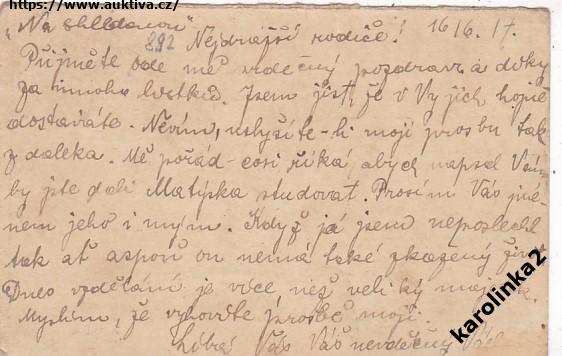 https://www.auktiva.cz/
"Na shledanou"
892 Nejdražší rodiče! 16/6. 17.
Přijměte ode mě srdečný pozdrav a díky
za mnoho lístků. Jsem jist, že i Vy jich hojně
dostáváte. Nevím, uslyšíte-li moji prosbu tak
z daleka. Mě pořád cosi říká, abych napsal Vám
by jste dali Matýska studovat. Prosím Vás jmé-
nem jeho i mým. Když já jsem neposlechl
tak ať aspoň on nemá také zkažený život
Dnes vzdělání je více než veliký
Myslím, že vyhovíte prosbě mojí.
Líbá Vás Váš nevděčný
karolinka2